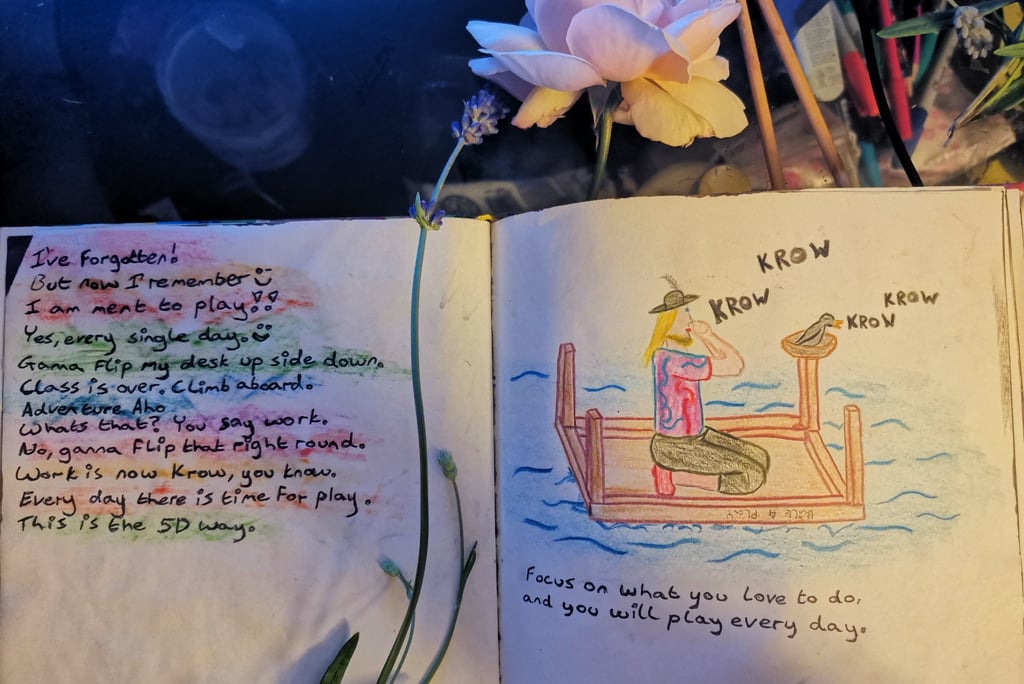 I've Forgotten!
But now I remember
I am ment to play!!
Yes, every single day.
Ganna Flip my desk up side down.
Class is over. Climb aboard.
Adventure Aho
Whats that? You say work.
No, ganna Flip that right round.
Work is now Krow, you know.
Every day there is time for play.
This is the 5D way.
KROW
KROW
KROW
KROW
Focus on what you love to do,
and you will play every day.